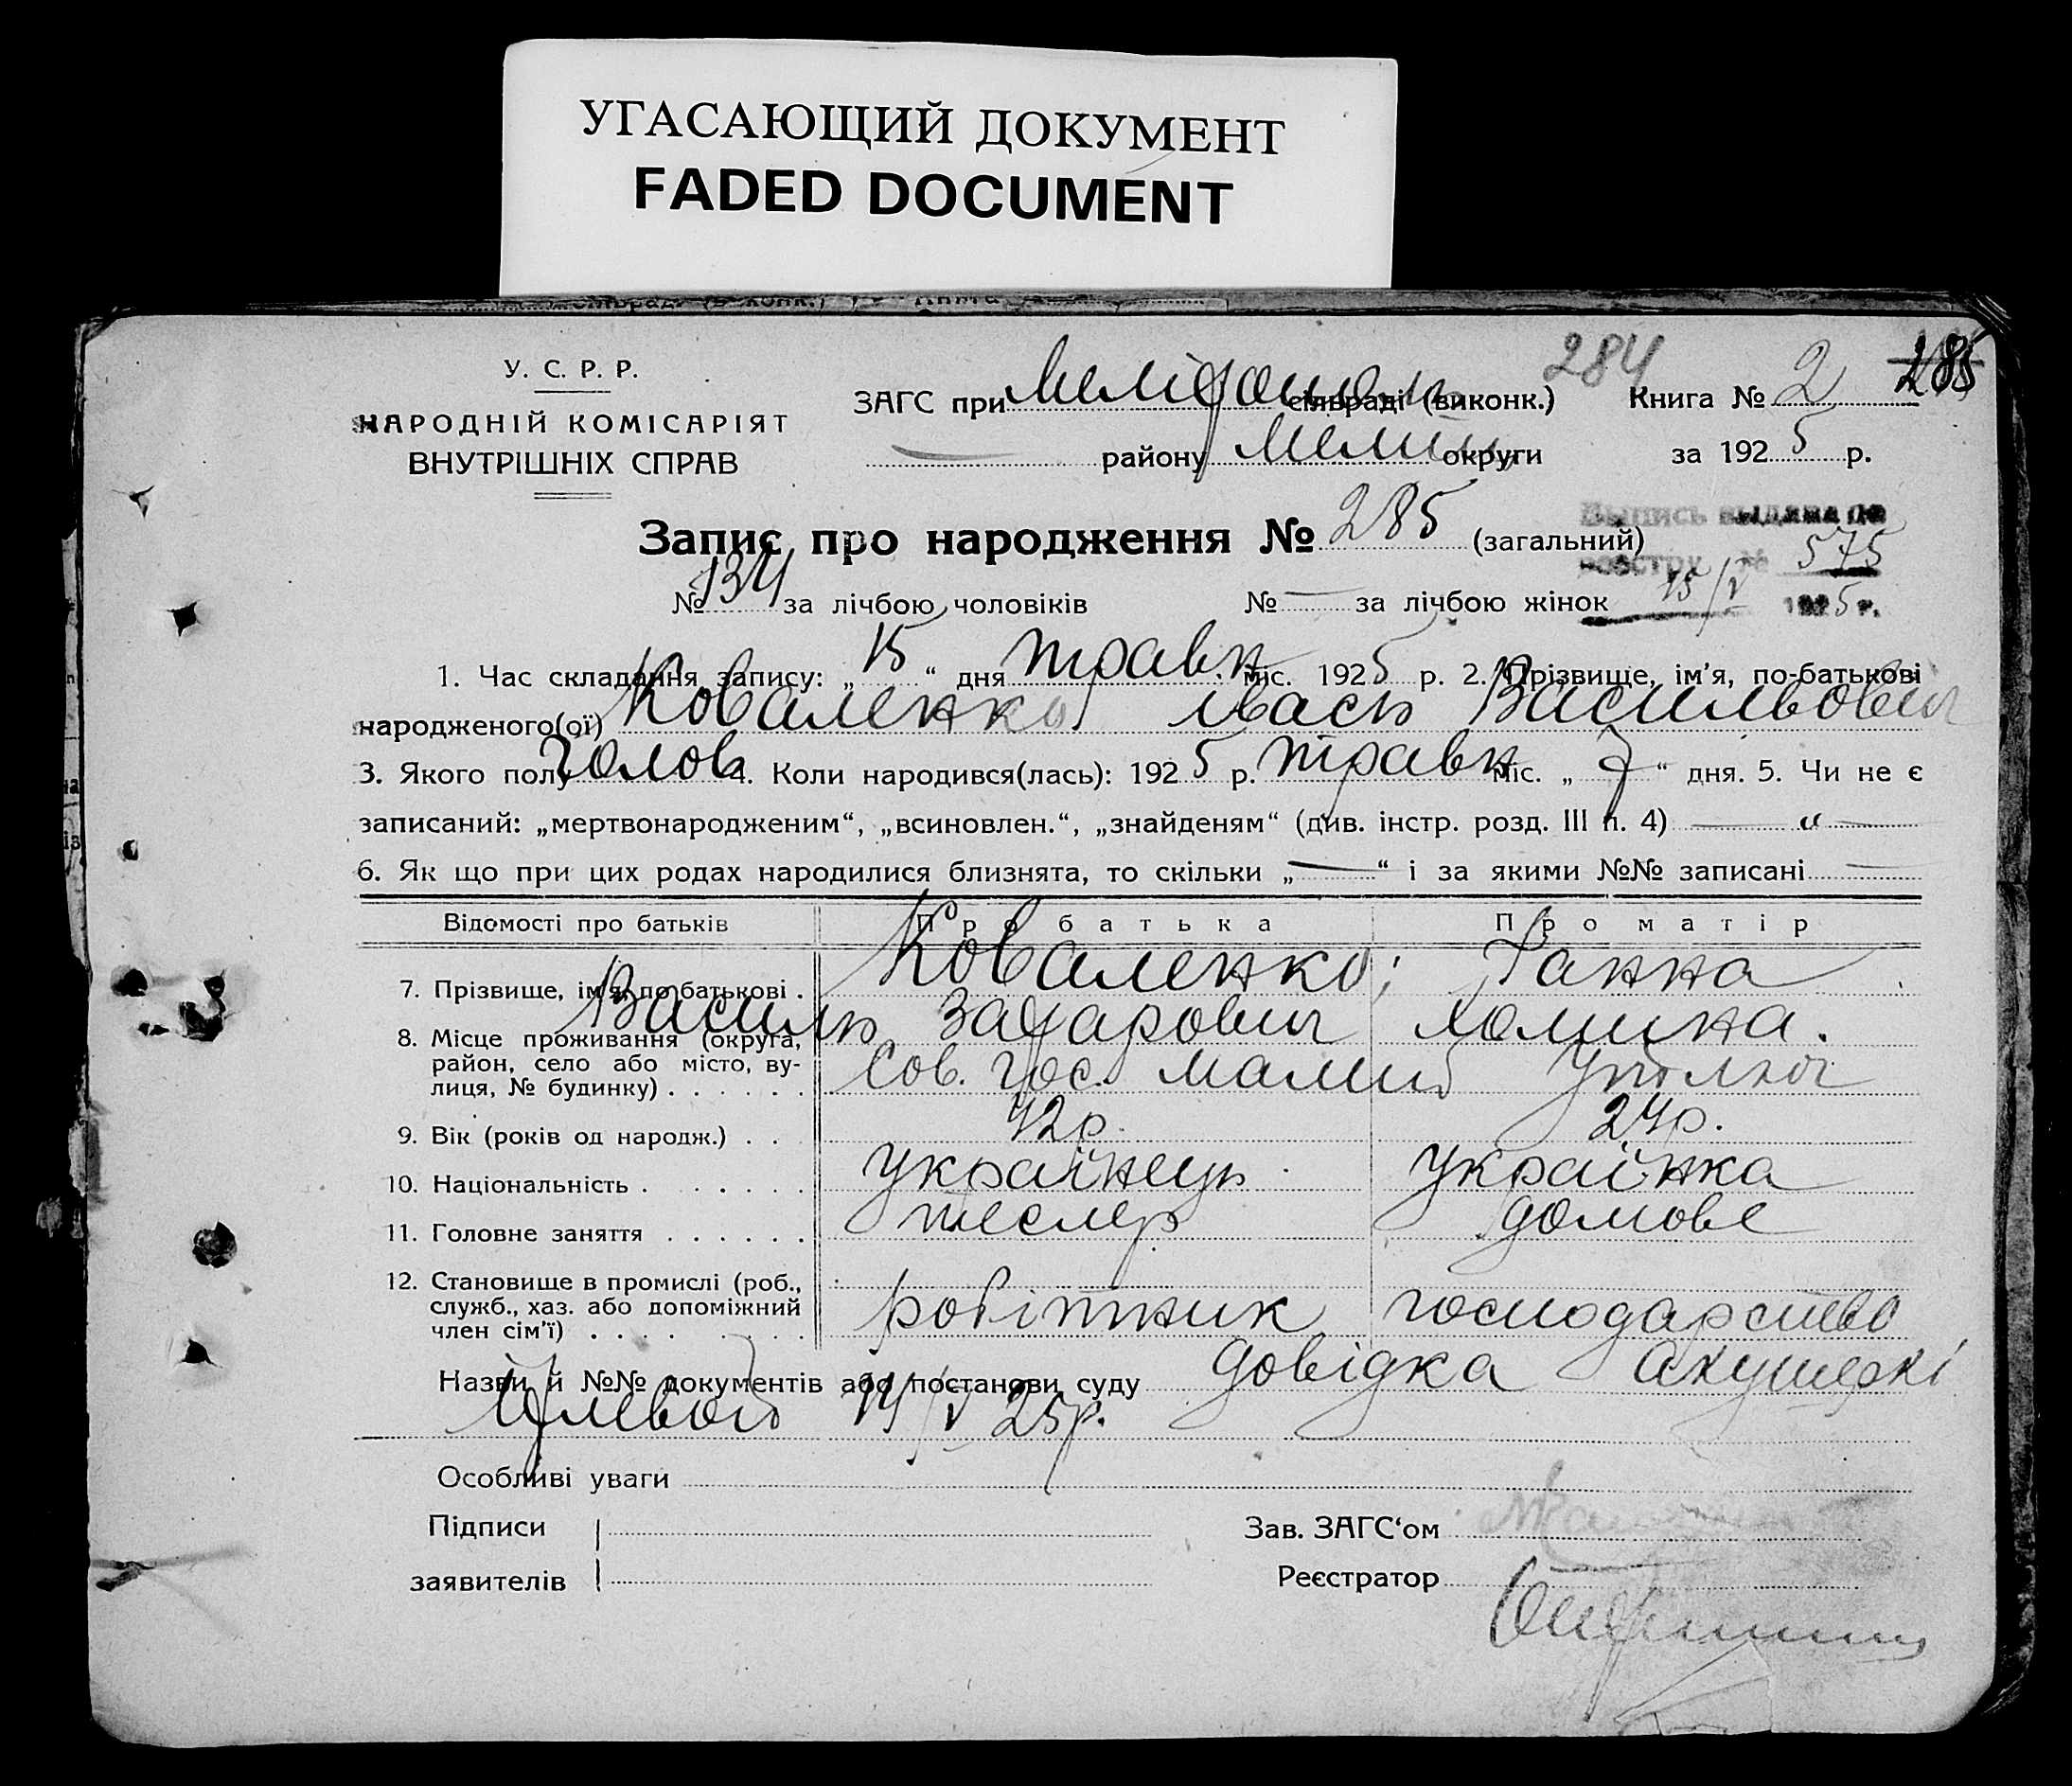 УГАСАЮЩИЙ ДОКУМЕНТ
FADED DOCUMENT
У. С. Р. Р.
НАРОДНІЙ КОМІСАРІЯТ
ВНУТРІШНІХ СПРАВ
284
285
ЗАГС при сільраді (виконк.) Книга № 2
— району Меліт. округи за 1925 р.
Запис про народження № 285 (загальний)
Выпись выдана по
реестру № 575
15/V 1925 г.
№ 134 за лічбою чоловіків № — за лічбою жінок
1. Час складання запису: „15“ дня травн міс. 1925 р. 2. Прізвище, ім'я, по-батькові
народженого(ої) Коваленко Івась Васильович
3. Якого полу чолов 4. Коли народився(лась): 1925 р. травн міс. „7“ дня. 5. Чи не є
записаний: „мертвонародженим“, „всиновлен.“, „знайденям“ (див. інстр. розд. III п. 4) — „ —
6. Як що при цих родах народилися близнята, то скільки „—“ і за якими №№ записані —
Відомості про батьків Про батька Про матір
7. Прізвище, ім'я, по-батькові . Коваленко; Ганна
Василь Захарович Хомина.
8. Місце проживання (округа,
район, село або місто, ву-
лиця, № будинку) . . . . . . Сов. гос.
9. Вік (років од народж.) . . 42р. 24р.
10. Національність . . . . . . українець українка
11. Головне заняття . . . . . . тесляр домове
12. Становище в промислі (роб.,
служб., хаз. або допоміжний
член сім'ї) . . . . . . . . робітник господарство
Назви й №№ документів або постанови суду довідка акушеркі
14/V 25р.
Особливі уваги
Підписи
заявителів
Зав. ЗАГС'ом
Реєстратор